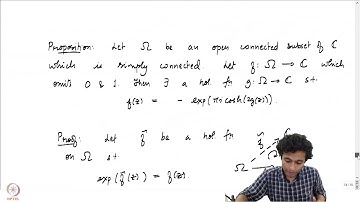 Proposition: Let Ω be an open connected subset of ℂ
which is simply connected. Let f: Ω → ℂ which
omits 0 & 1. Then ∃ a hol. fn g: Ω → ℂ s.t.
f(z) = - exp(πi cosh(2g(z))).
Proof: Let f̃ be a hol. fn
on Ω s.t.
exp(f̃(z)) = f(z).
f̃ ℂ
Ω
NPTEL